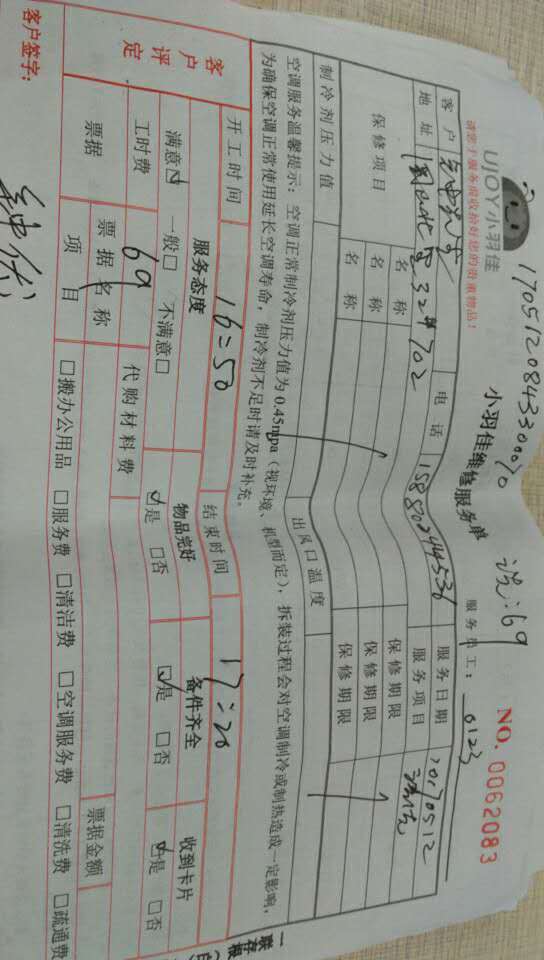 1705120843300070
UJOY小羽佳
请您于服务前收拾好您的贵重物品！
小羽佳维修服务单
洗：69
NO. 0062083
服务员工：0123
客户 电话 服务日期 20170512
地址 32# 702 服务项目 清洗
保修项目 名称 保修期限
名称 保修期限
名称 保修期限
制冷剂压力值 出风口温度
空调服务温馨提示：空调正常制冷剂压力值为0.45mpa（视环境、机型而定），拆装过程会对空调制冷或制热造成一定影响，
为确保空调正常使用延长空调寿命，制冷剂不足时请及时补充。
开工时间 16:50 结束时间 17:20
客户评定 服务态度 物品完好 备件齐全 收到卡片
满意☑ 一般□ 不满意□ ☑是 □否 ☑是 □否 ☑是 □否
工时费 69 代购材料费
票据 票据名称 票据金额
项目 □搬办公用品 □服务费 □清洁费 □空调服务费 □清洗费 □疏通费
客户签字：